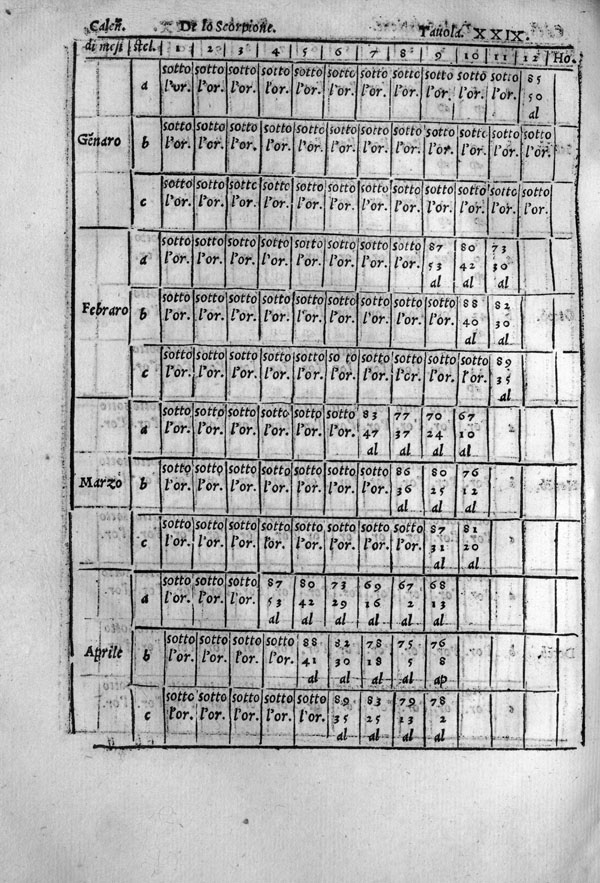 Calen̄. De lo Scorpione. Tauola. XXIX.
di mesi stel. 1 2 3 4 5 6 7 8 9 10 11 12 Ho.
sotto sotto sotto sotto sotto sotto sotto sotto sotto sotto sotto 85
a l'or. l'or. l'or. l'or. l'or. l'or. l'or. l'or. l'or. l'or. l'or. 50
al
sotto sotto sotto sotto sotto sotto sotto sotto sotto sotto sotto sotto
Gēnaro b l'or. l'or. l'or. l'or. l'or. l'or. l'or. l'or. l'or. l'or. l'or. l'or.
sotto sotto sotto sotto sotto sotto sotto sotto sotto sotto sotto sotto
c l'or. l'or. l'or. l'or. l'or. l'or. l'or. l'or. l'or. l'or. l'or. l'or.
sotto sotto sotto sotto sotto sotto sotto sotto 87 80 73
a l'or. l'or. l'or. l'or. l'or. l'or. l'or. l'or. 53 42 30
al al al
sotto sotto sotto sotto sotto sotto sotto sotto sotto 88 82
Febraro b l'or. l'or. l'or. l'or. l'or. l'or. l'or. l'or. l'or. 40 30
al al
sotto sotto sotto sotto sotto so to sotto sotto sotto sotto 89
c l'or. l'or. l'or. l'or. l'or. l'or. l'or. l'or. l'or. l'or. 35
al
sotto sotto sotto sotto sotto sotto 83 77 70 67
a l'or. l'or. l'or. l'or. l'or. l'or. 47 37 24 10
al al al al
sotto sotto sotto sotto sotto sotto sotto 86 80 76
Marzo b l'or. l'or. l'or. l'or. l'or. l'or. l'or. 36 25 12
al al al
sotto sotto sotto sotto sotto sotto sotto sotto 87 81
c l'or. l'or. l'or. l'or. l'or. l'or. l'or. l'or. 31 20
al al
sotto sotto sotto 87 80 73 69 67 68
a l'or. l'or. l'or. 53 42 29 16 2 13
al al al al al al
sotto sotto sotto sotto 88 82 78 75 76
Aprile b l'or. l'or. l'or. l'or. 41 30 18 5 8
al al al al ap
sotto sotto sotto sotto sotto 89 83 79 78
c l'or. l'or. l'or. l'or. l'or. 35 25 13 2
al al al al